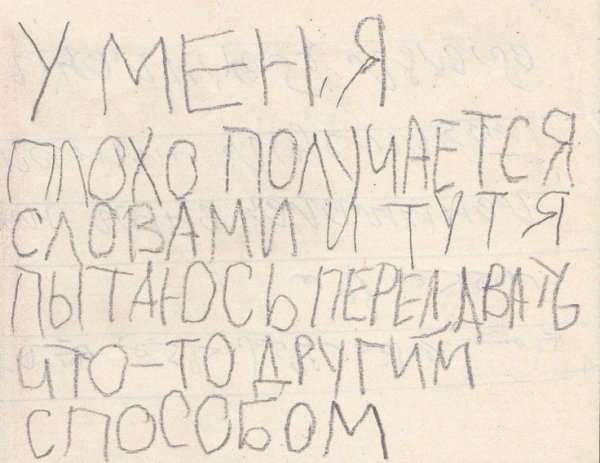 У МЕНЯ
ПЛОХО ПОЛУЧАЕТСЯ
СЛОВАМИ И ТУТ Я
ПЫТАЮСЬ ПЕРЕДАВАТЬ
ЧТО-ТО ДРУГИМ
СПОСОБОМ